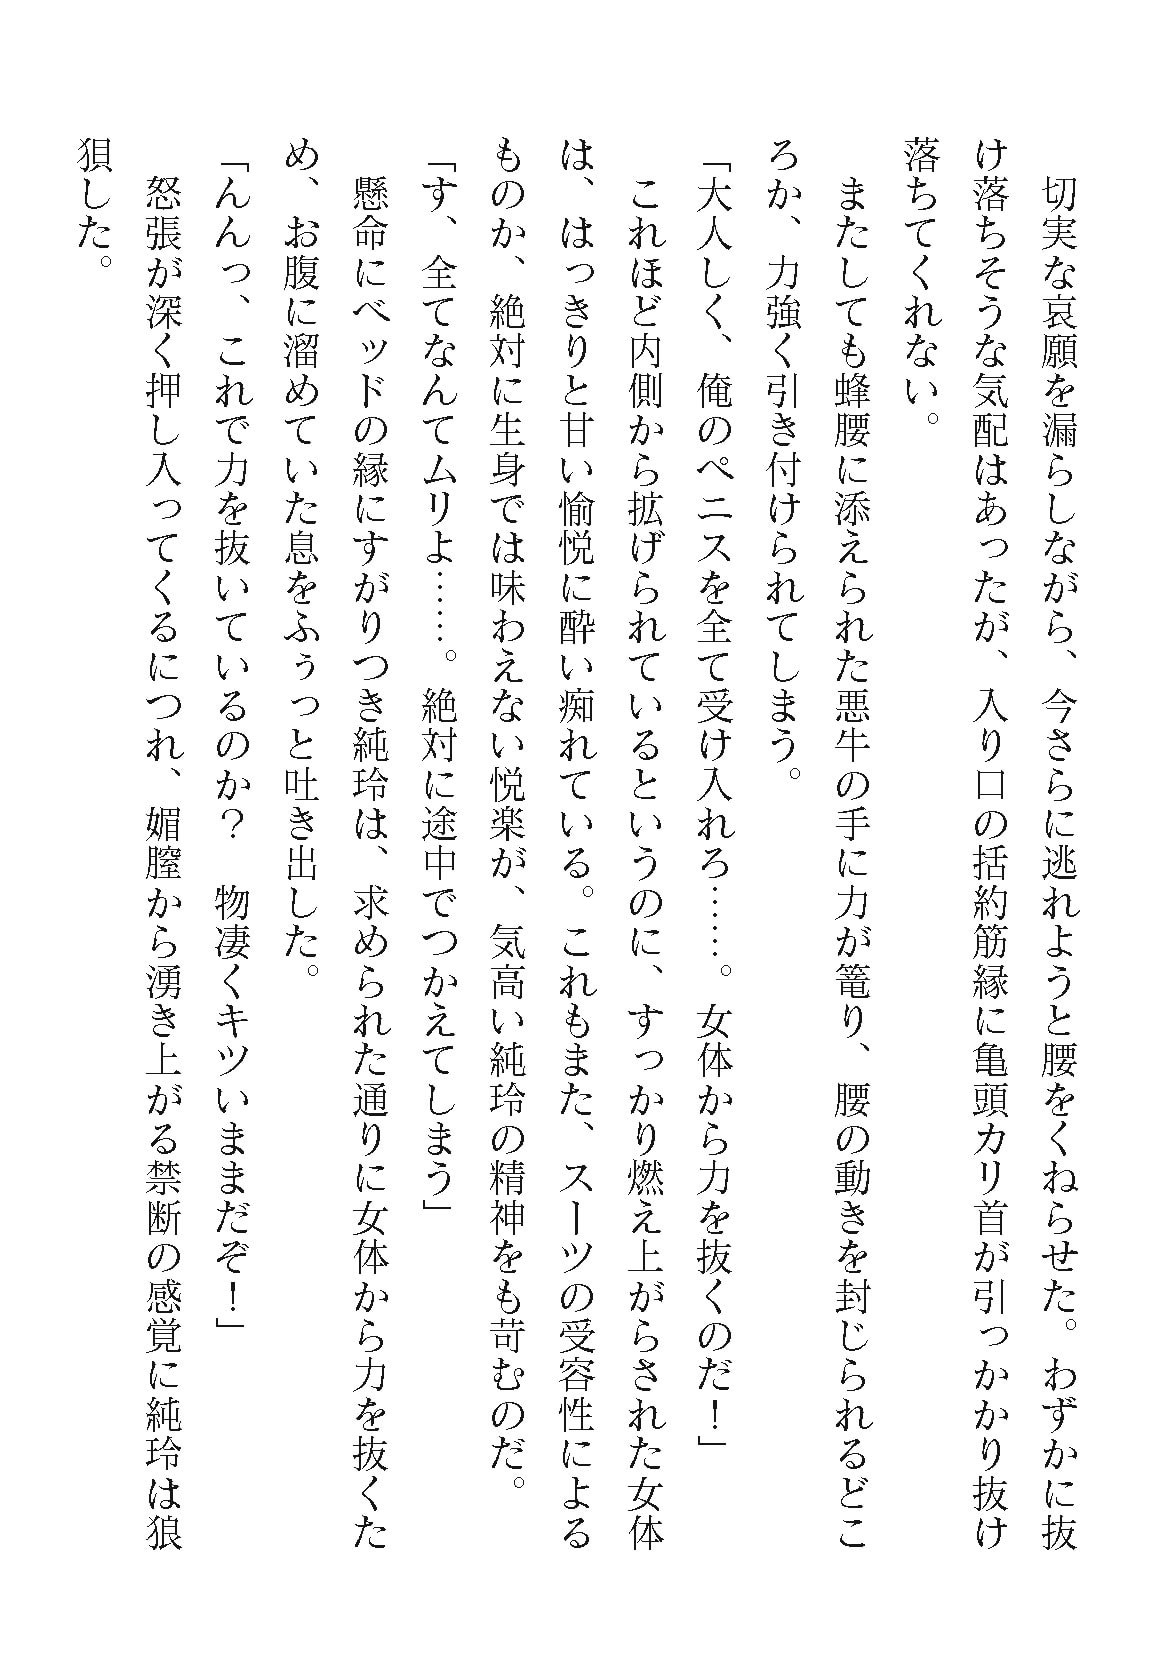 切実な哀願を漏らしながら、今さらに逃れようと腰をくねらせた。わずかに抜
け落ちそうな気配はあったが、入り口の括約筋縁に亀頭カリ首が引っかかり抜け
落ちてくれない。
　またしても蜂腰に添えられた悪牛の手に力が篭り、腰の動きを封じられるどこ
ろか、力強く引き付けられてしまう。
「大人しく、俺のペニスを全て受け入れろ……。女体から力を抜くのだ！」
　これほど内側から拡げられているというのに、すっかり燃え上がらされた女体
は、はっきりと甘い愉悦に酔い痴れている。これもまた、スーツの受容性による
ものか、絶対に生身では味わえない悦楽が、気高い純玲の精神をも苛むのだ。
「す、全てなんてムリよ……。絶対に途中でつかえてしまう」
　懸命にベッドの縁にすがりつき純玲は、求められた通りに女体から力を抜くた
め、お腹に溜めていた息をふぅっと吐き出した。
「んんっ、これで力を抜いているのか？　物凄くキツいままだぞ！」
　怒張が深く押し入ってくるにつれ、媚膣から湧き上がる禁断の感覚に純玲は狼
狽した。